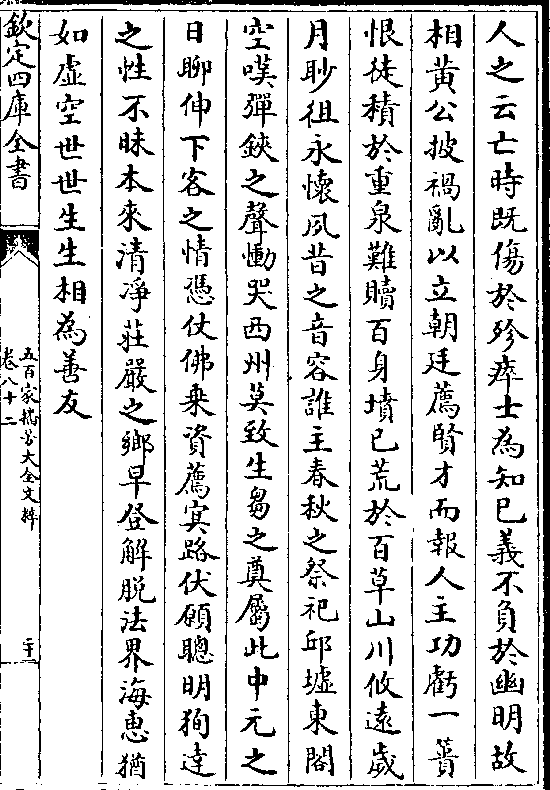 人之云亡時既傷於殄瘁士為知已義不負於幽明故
相黄公披禍亂以立朝廷薦賢才而報人主功虧一簣
恨徒積於重泉難贖百身墳已荒於百草山川攸遠歲
月眇徂永懷夙昔之音容誰主春秋之祭祀邱墟東閣
空嘆彈鋏之聲慟哭西州莫致生芻之奠屬此中元之
日聊伸下客之情憑仗佛乗資薦冥路伏願聰明狥達
之性不昧本來清凈莊嚴之鄉早登解脱法界海恵猶
如虚空世世生生相為善友
欽定四庫全書
五百家播芳大全文粹
卷八十二
二十一